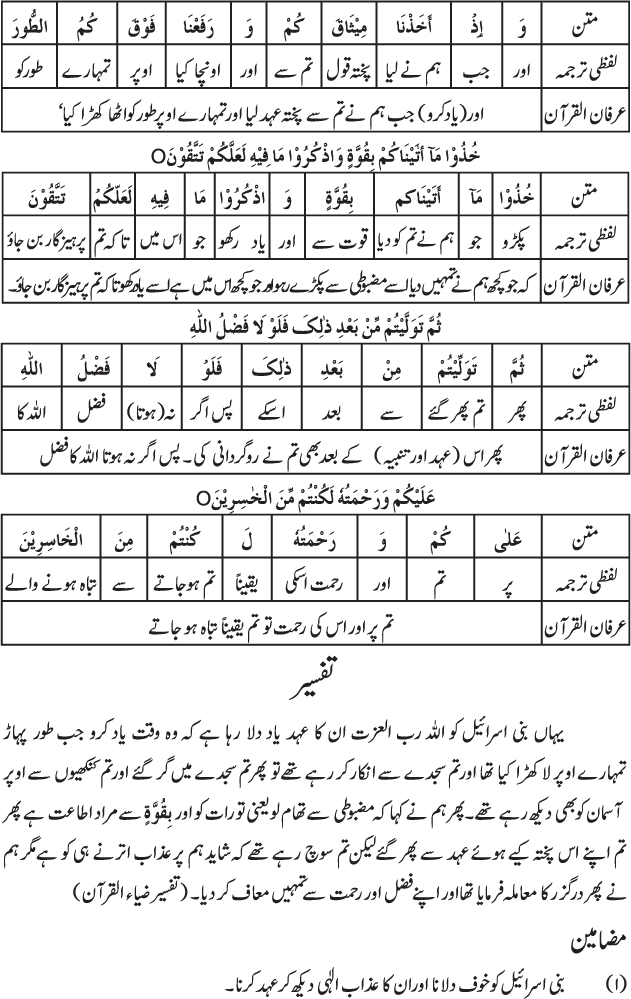 متن وَ إِذْ أَخَذْنَا مِيْثَاقَ كُمْ وَ رَفَعْنَا فَوْقَ كُمُ الطُّورَ
لفظی ترجمہ اور جب ہم نے لیا پختہ قول تم سے اور اونچا کیا اوپر تمہارے طور کو
عرفان القرآن اور (یاد کرو) جب ہم نے تم سے پختہ عہد لیا اور تمہارے اوپر طور کو اٹھا کھڑا کیا‘
خُذُوْا مَآ اٰتَيْنَاكُمْ بِقُوَّةٍ وَاذْكُرُوْا مَا فِيْهِ لَعَلَّكُمْ تَتَّقُوْنَO
متن خُذُوْا مَآ أٰتَيْنَاكم بِقُوَّةٍ وَ اذْكُرُوْا مَا فِيْهِ لَعَلَّكُمْ تَتَّقُوْنَ
لفظی ترجمہ پکڑو جو ہم نے تم کو دیا قوت سے اور یاد رکھو جو اس میں تاکہ تم پرہیزگار بن جاؤ
عرفان القرآن کہ جو کچھ ہم نے تمہیں دیا اسے مضبوطی سے پکڑے رہو اور جو کچھ اس میں ہے اسے یاد رکھو تاکہ تم پرہیزگار بن جاؤ۔
ثُمَّ تَوَلَّيْتُمْ مِّنْ بَعْدِ ذٰلِکَ فَلَوْ لَا فَضْلُ اللهِ
متن ثُمَّ تَوَلَّيْتُمْ مِنْ بَعْدِ ذٰلِکَ فَلَوْ لَا فَضْلُ اللهِ
لفظی ترجمہ پھر تم پھر گئے سے بعد اسکے پس اگر نہ (ہوتا) فضل اللہ کا
عرفان القرآن پھر اس (عہد اور تنبیہ) کے بعد بھی تم نے روگردانی کی۔ پس اگر نہ ہوتا اللہ کا فضل
عَلَيْكُمْ وَرَحْمَتُهٗ لَكُنْتُمْ مِّنَ الْخٰسِرِيْنَO
متن عَلیٰ كُمْ وَ رَحْمَتُهٗ لَ كُنْتُمْ مِنَ الْخَاسِرِيْنَ
لفظی ترجمہ پر تم اور رحمت اسکی یقیناً تم ہو جاتے سے تباہ ہونے والے
عرفان القرآن تم پر اور اس کی رحمت تو تم یقیناً تباہ ہو جاتے
تفسیر
یہاں بنی اسرائیل کو اللہ رب العزت ان کا عہد یاد دلا رہا ہے کہ وہ وقت یاد کرو جب طور پہاڑ
تمہارے اوپر لا کھڑا کیا تھا اور تم سجدے سے انکار کر رہے تھے تو پھر تم سجدے میں گر گئے اور تم کنکھیوں سے اوپر
آسمان کو بھی دیکھ رہے تھے۔ پھر ہم نے کہا کہ مضبوطی سے تھام لو یعنی تورات کو اور بِقُوَّةٍ سے مراد اطاعت ہے پھر
تم اپنے اس پختہ کیے ہوئے عہد سے پھر گئے لیکن تم سوچ رہے تھے کہ شاید ہم پر عذاب اترنے ہی کو ہے مگر ہم
نے پھر درگزر کا معاملہ فرمایا تھا اور اپنے فضل اور رحمت سے تمہیں معاف کر دیا۔ (تفسیر ضیاء القرآن)
مضامین
(۱) بنی اسرائیل کو خوف دلانا اور ان کا عذاب الٰہی دیکھ کر عہد کرنا۔